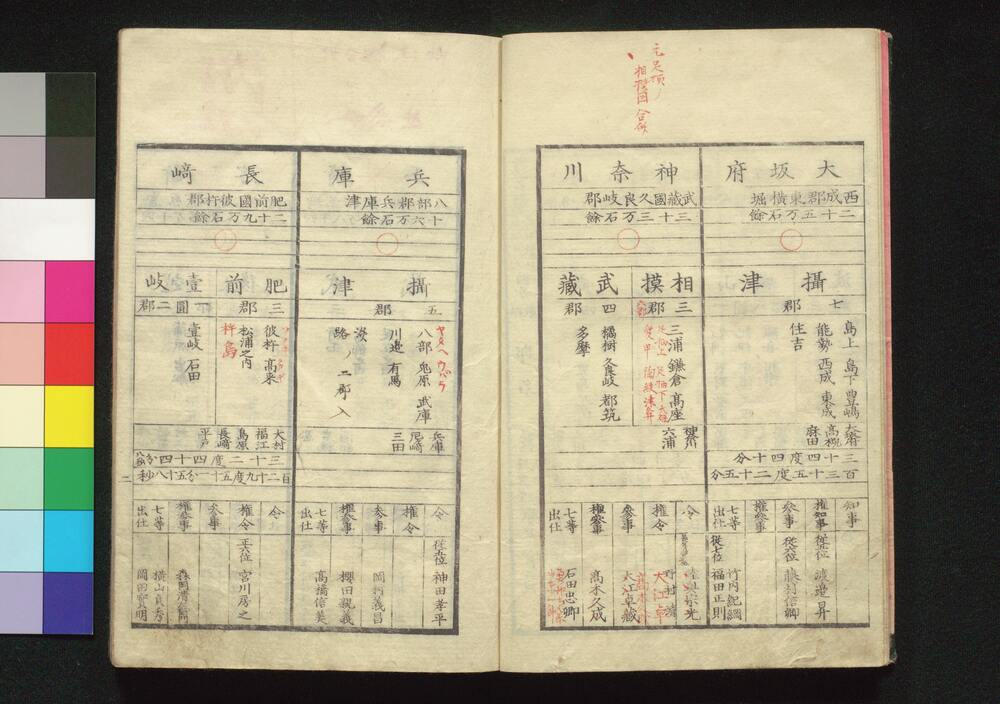 大坂府
西成郡東横堀
二十五万石餘
攝津
七郡
島上 島下 豊嶋
能勢 西成 東成
住吉
高槻
麻田
三十四度四十分
百三十五度二十五分
知事
權知事 從五位 渡邉昇
參事 從六位 藤村信卿
權參事
七等出仕 從七位 竹内紀綱
福田正則
相摸国合併
神奈川
武藏國久良岐郡
三十三万石餘
相摸
三郡
三浦 鎌倉 高座
足柄上 足柄下 大住
愛甲 淘綾 津久井
武藏
四郡
橘樹 久良岐 都筑
多摩
神奈川
六浦
令 陸奥宗光
權令 大江卓
參事 大江卓藏
權參事 高木久成
七等出仕 石田忠卿
兵庫
八部郡兵庫津
十六万石餘
攝津
五郡
ヤタヘ ウバラ
八部 兎原 武庫
川邉 有馬
淡路ノ二郡入
兵庫
尼﨑
三田
令 從五位 神田孝平
權令
參事 岡村義昌
權參事 櫻田親義
七等出仕 高橋信美
長﨑
肥前國彼杵郡
二十九万石餘
肥前
三郡
彼杵 高来
松浦之内
杵島
壹岐
一圓二郡
壹岐 石田
大村
福江
島原
長﨑
平戸
三十二度四十四分
百二十九度五十一分五十八秒
令
權令 正六位 宮川房之
參事
權參事 森岡
七等出仕 横山貞秀
岡田賢明
二